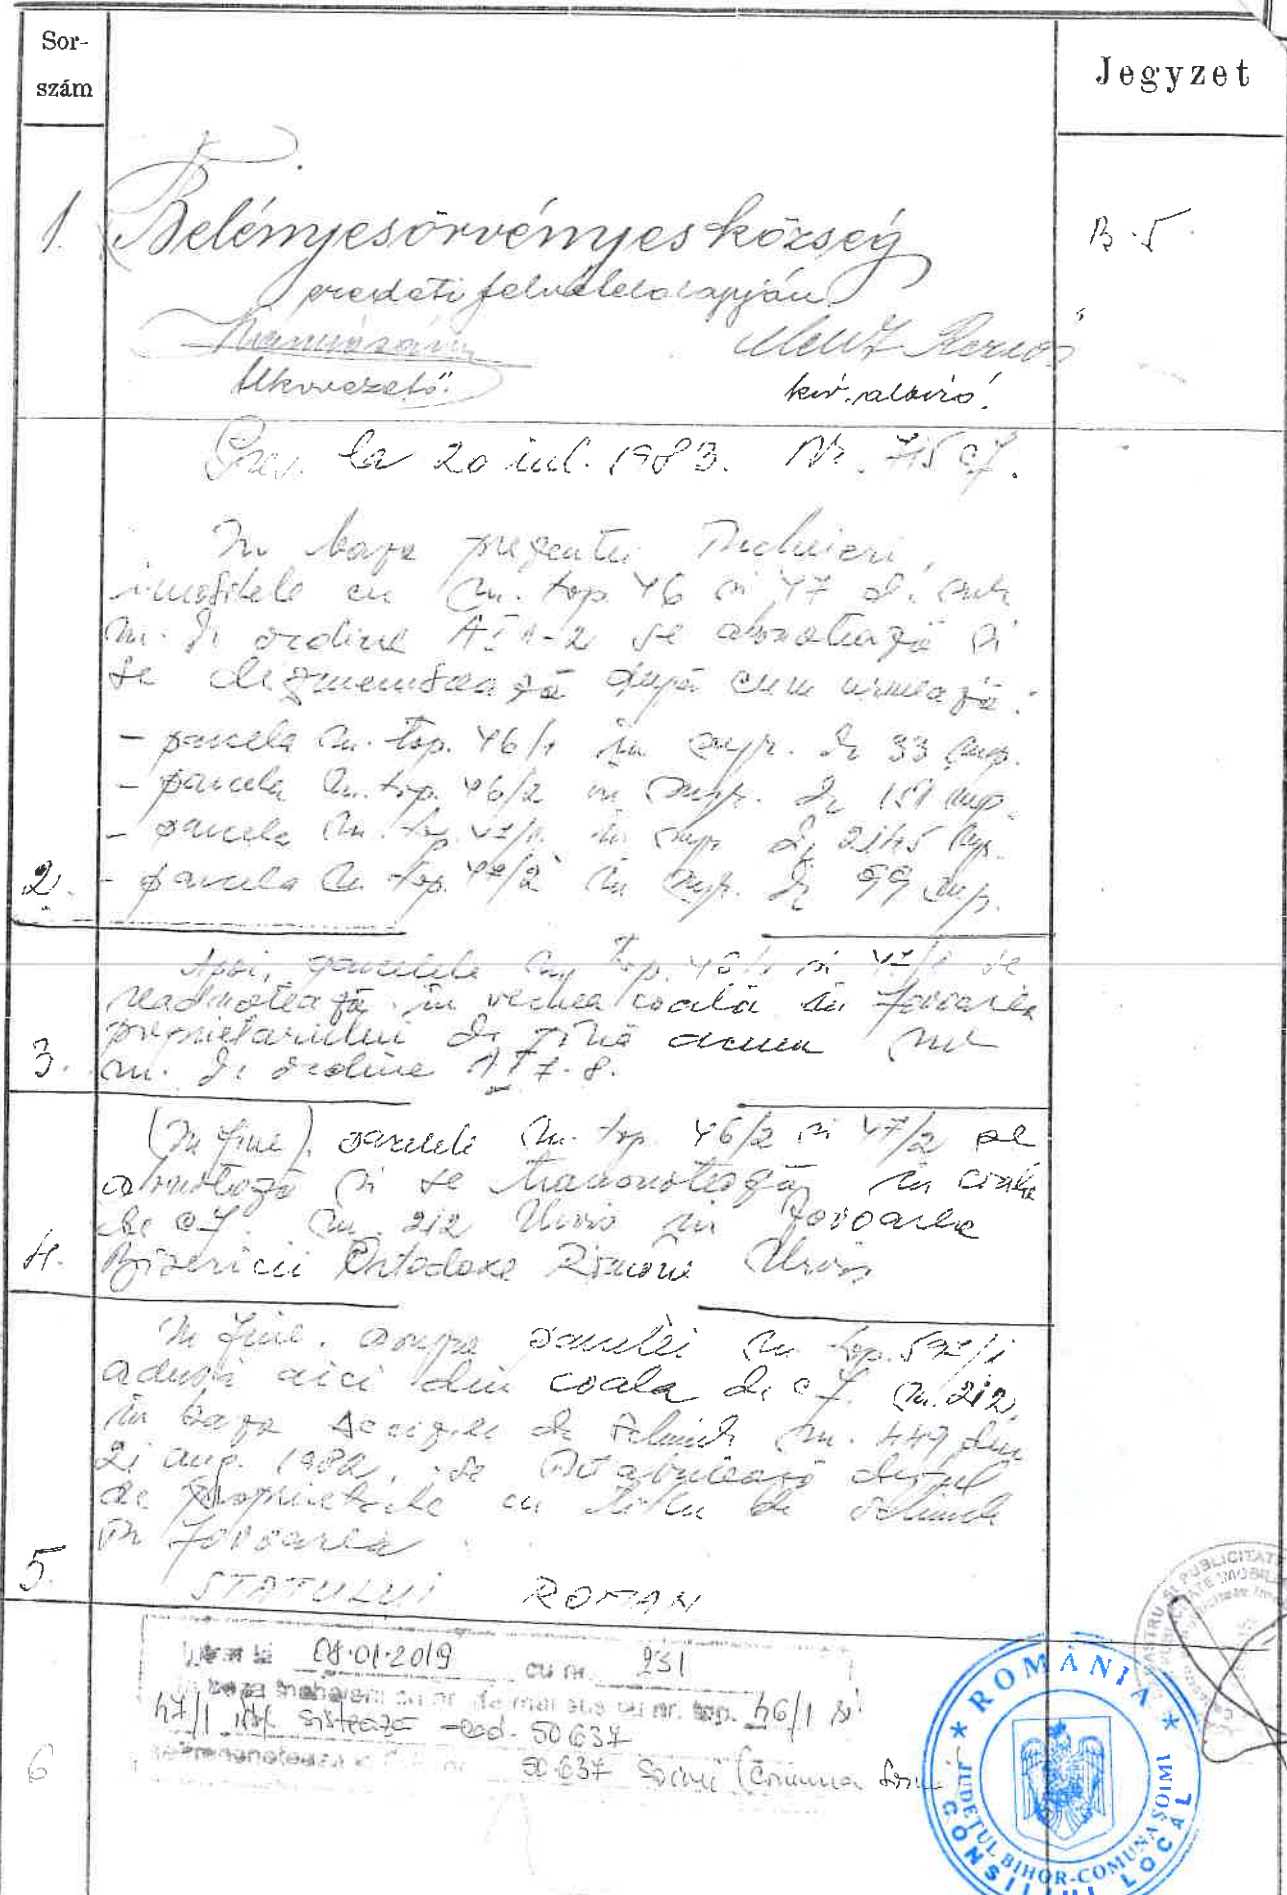 Sor-
szám
Jegyzet
1.
Belényesörvényes község
B.5.
eredeti felvétel alapján
kir. aljbiró.
la 20 iul. 1983. Nr. 715 cf.
In baza prezentei Incheieri,
imobilele cu nr. top. 46 si 47 de sub
nr. de ordine A I 1-2 se abnotează si
se dezmembrează după cum urmează:
- parcela nr. top. 46/1 in supr. de 33 mp.
- parcela nr. top. 46/2 in supr. de 151 mp.
- parcela nr. top. 47/1 in supr. de 2145 mp.
2. - parcela nr. top. 47/2 in supr. de 99 mp.
Apoi, parcelele nr. top. 46/1 si 47/1 se
readnotează in vechea coală in favoarea
proprietarului de pînă acum sub
3. nr. de ordine A I 7-8.
(In fine) parcelele nr. top. 46/2 si 47/2 se
abnotează si se transnotează in coala
de cf. nr. 212 Urvis in favoarea
4. Bisericii Ortodoxe Române Urvis
In fine, asupra parcelei nr. top. 597/1
adusă aici din coala de cf. nr. 212,
in baza Deciziei de schimb nr. 449 din
21 aug. 1982, se intabulează dreptul
de proprietate cu titlu de schimb
in favoarea
5. STATULUI ROMAN
08.01.2019 cu nr. 231
de mai sus cu nr. top. 46/1 si
47/1 sistează cad. 50637
6
50637 Soimi (Comuna
ROMÂNIA
JUDEŢUL BIHOR-COMUNA ŞOIMI
CONSILIUL LOCAL